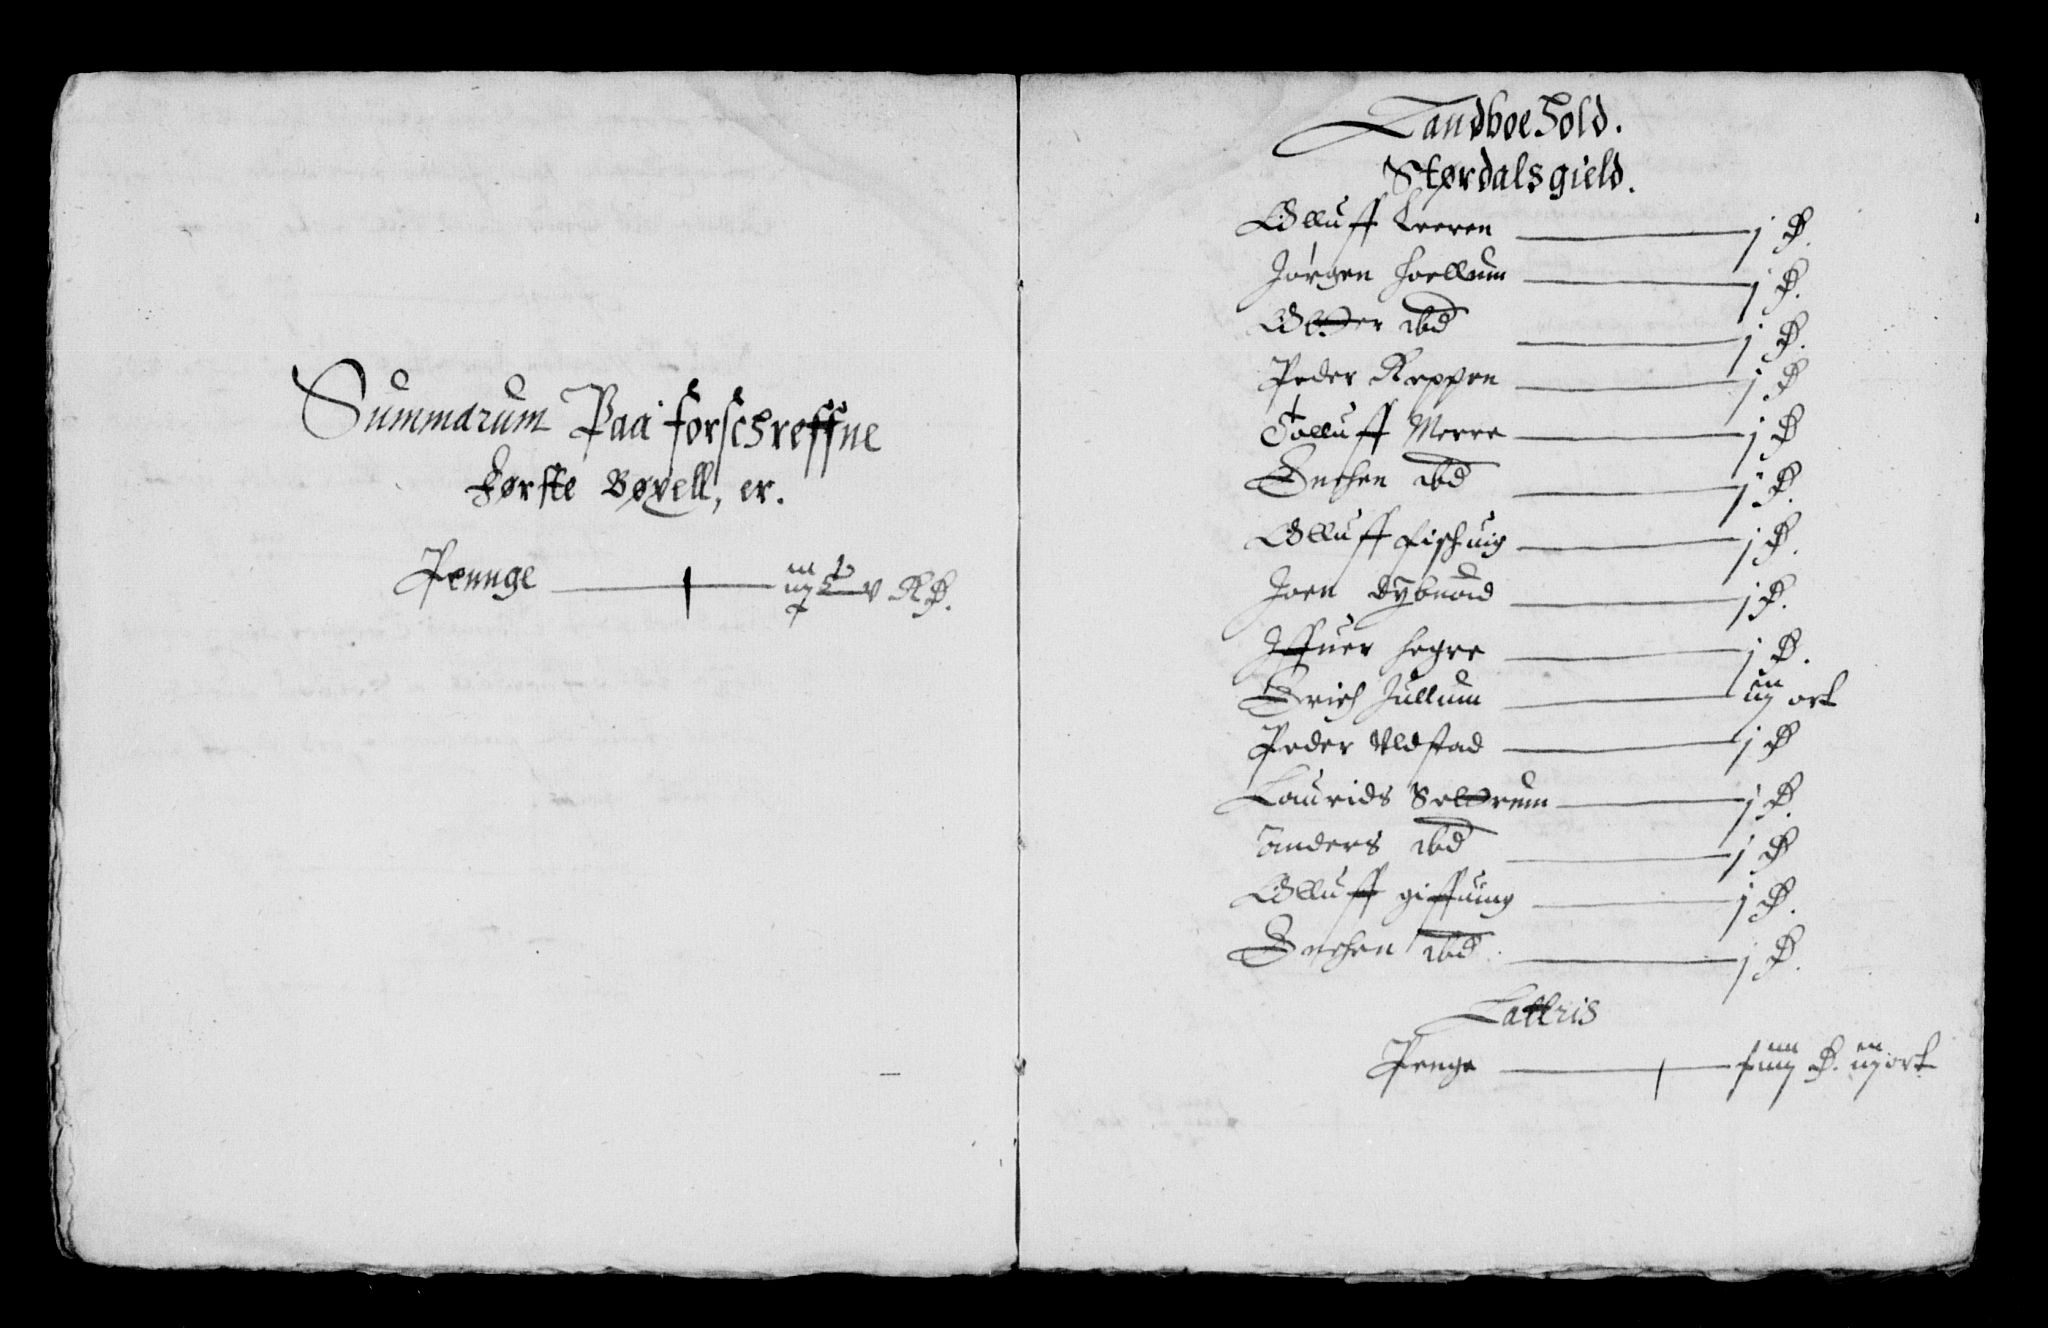 Summarum Paa forschreffne
Første Bøxell, er.
Pennge
Landboe Hold.
Størdals gield.
Olluff Leeren — j D.
Jørgen Hoellum — j D.
Oluer ibd — j D.
Peder Reppen — j D
Tolluff Merre — j D
Enchen ibd — j D.
Olluff Fischuig — j D.
Joen Dybuad — j D.
Iffuer Hegre — j D.
Erich Jullum — iij ort
Peder Vldstad — j D
Laurids Seluerum — j D.
Anders ibd — j D
Olluff Giffuing — j D.
Enchen ibd. — j D.
Latteris
Penge — xiiij D. iij ort